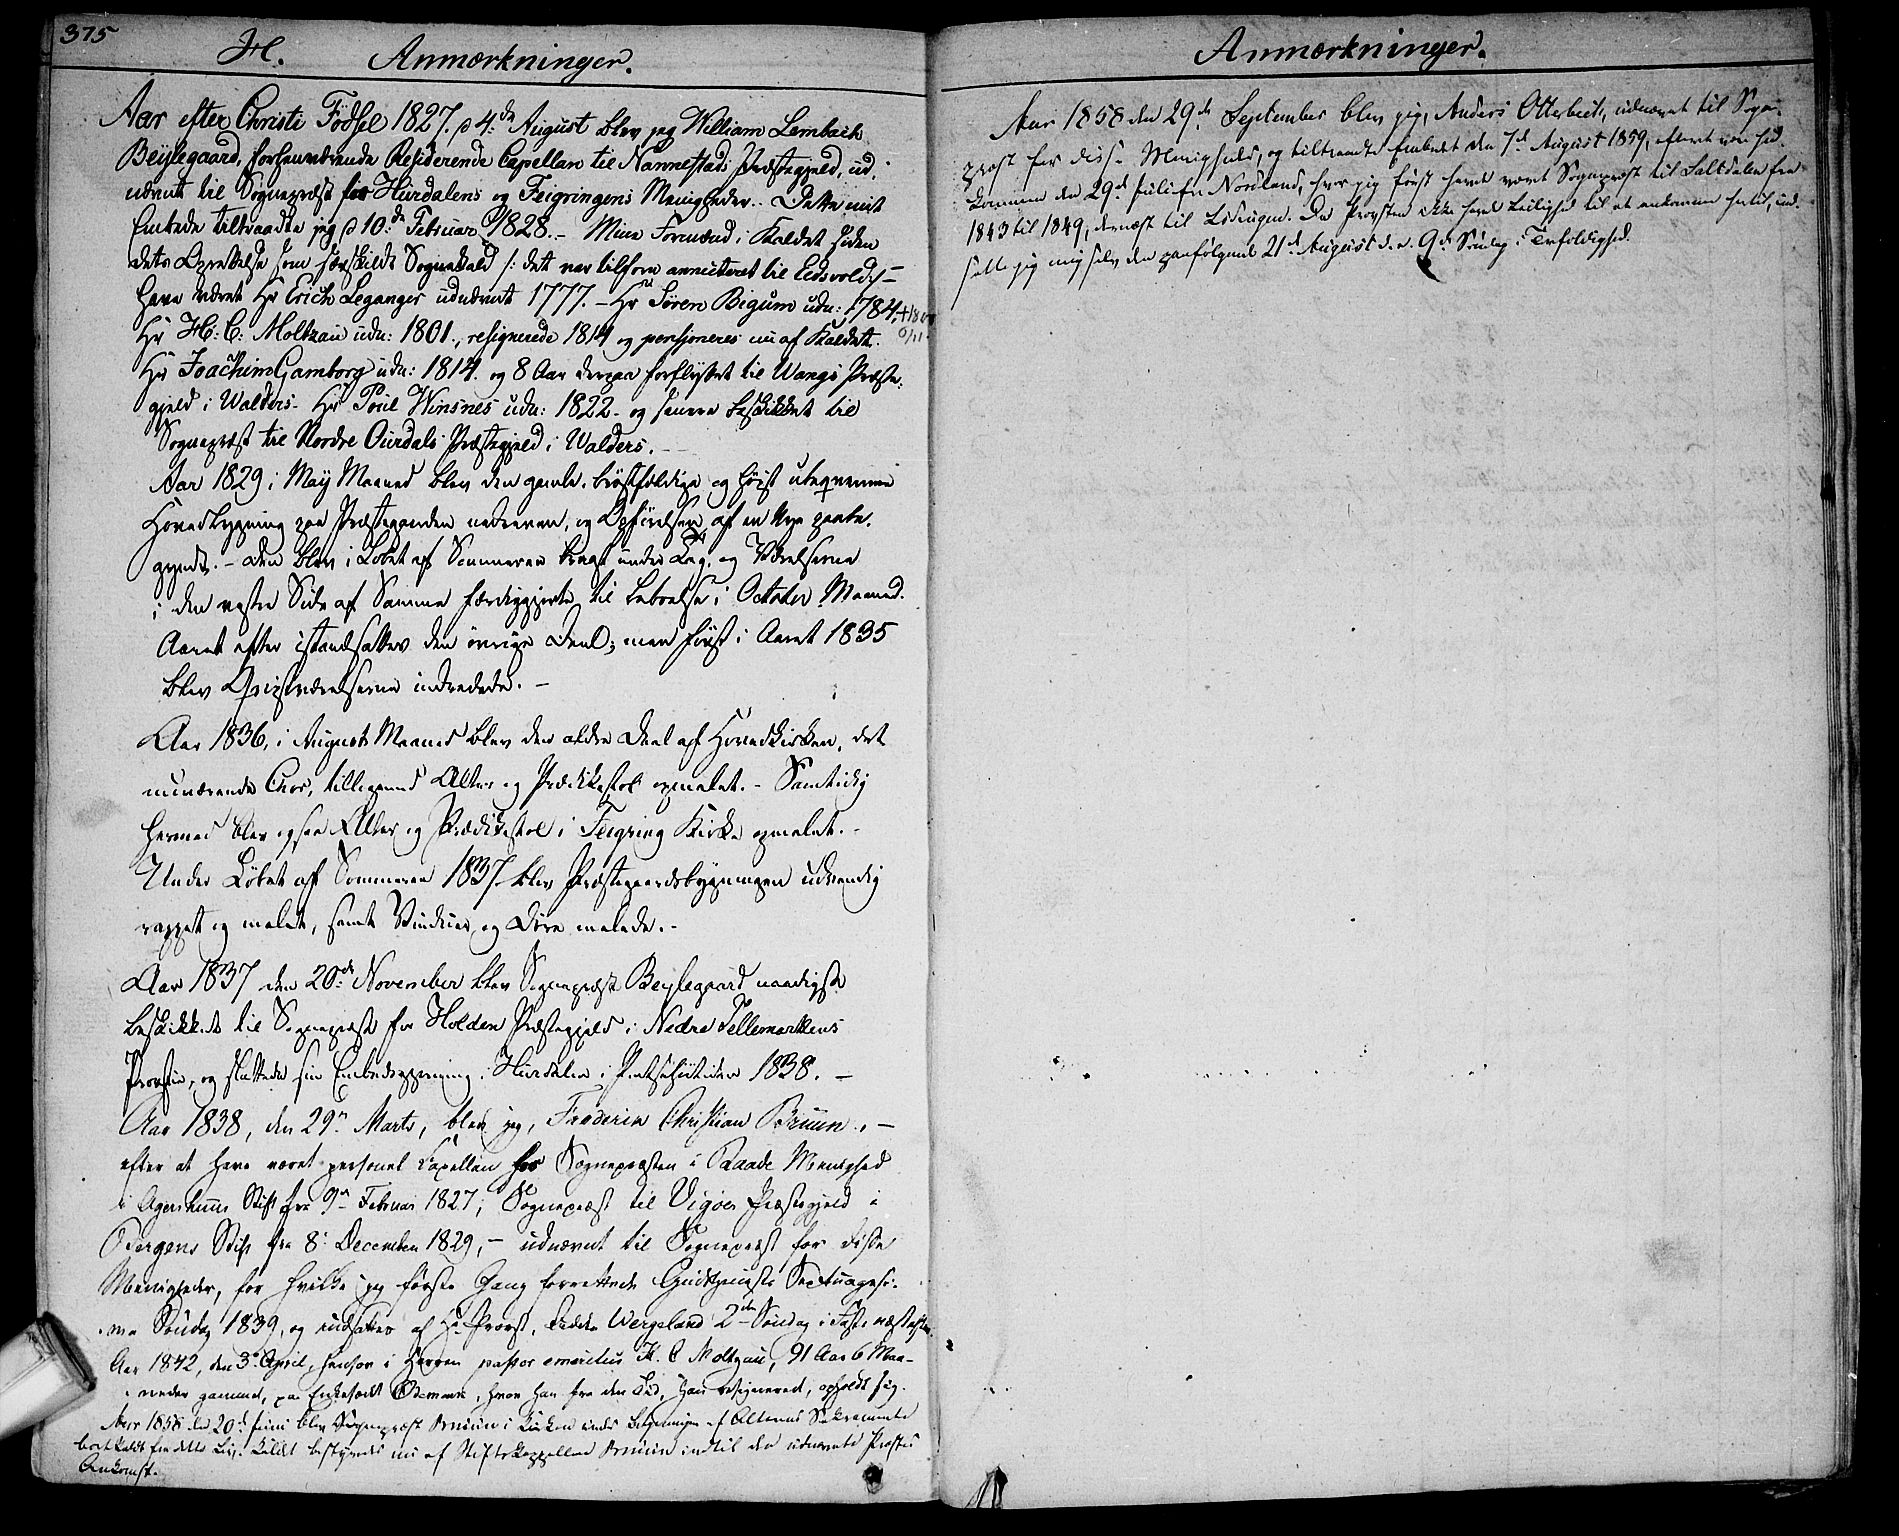 375
H. Anmærkninger.
Aar efter Christi Födsel 1827. d 4de August blev jeg William Lembach
Beylegaard, forhenværende Residerende Capellan til Nannestads Præstegjeld, ud-
nævnt til Sognepræst for Hurdalens og Feigringens Menigheder. Dette mit
Embede tiltraadte jeg d 10de Februar 1828. - Mine Formænd i Kaldet siden
dets Oprettelse som særskildt Sognekald /: det var tilforn annecteret til Eidsvold :/ -
have været Hr Erich Leganger udnævnt 1777. - Hr Sören Bigum udn: 1784,
Hr H: C: Moltzau udn: 1801., resignerede 1814 og pensioneres nu af Kaldet.
Hr Joachim Gamborg udn: 1814. og 8 Aar derpaa forflyttet til Wangs Præste-
gjeld i Walders. Hr Poul Winsnes udn: 1822 - og senere beskikket til
Sognepræst til Nordre Ourdals Præstegjeld i Walders.
Aar 1829 i May Maaned blev den gamle, bröstfældige og höist ubeqvemme
Hovedbygning paa Præstegaarden nedreven, og Opförelsen af en Nye paabe-
gyndt. - Den blev i Löbet af Sommeren bragt under Tag, og Værelserne
i den vestre Side af Samme færdiggjorte til Beboelse i October Maaned.
Aaret efter istandsattes den övrige Deel; men först i Aaret 1835
blev Qvistværelserne indredede. -
Aar 1836, i August Maaned blev den ældre Deel af Hovedkirken, det
nuværende Chor, tilligemed Alter og Prædikestol opmalet. - Samtidig
hermed blev ogsaa Alter og Prædikestol i Feigring Kirke opmalet. -
Under Löbet af Sommeren 1837 blev Præstegaardsbygningen udvendig
rappet og malet, samt Vinduer og Döre malede. -
Aar 1837 den 20de November blev Sognepræst Beylegaard naadigst
beskikket til Sognepræst for Holden Præstegjeld i Nedre Tellemarkens
Provstie, og sluttede sin Embedsgjerning i Hurdalen i 1838. -
Aar 1838, den 29n Marts, blev jeg, Frederik Christian Bruun, -
efter at have været personel Capellan hos Sognepræsten i Raade Menighed
i Agershuus Stift fra 9n Februar 1827; Sognepræst til Vigöer Præstegjeld i
Bergens Stift fra 8. December 1829, - udnævnt til Sognepræst for disse
Menigheder, for hvilke jeg förste Gang forrettede Gudstjeneste Septuagesi-
ma Söndag 1839, og indsattes af Hr Provst, Ridder Wergeland 2den Söndag i Faste næstefter.
Aar 1842, den 3. April, hensov i Herren pastor emeritus H. C Moltzau, 91 Aar 6 Maa-
neder gammel, paa Enkesædet Ödemark, hvor han fra den Tid, han resignered, opholdt sig.
Aar 1858 den 20de Juni blev Sognepræst Bruun i Kirken under Betjeningen af Alterens Sakramente
bortkaldt fra dette Liv. Kaldet bestyredes nu af Stiftskappellan Bruun indtil den udnævnte Præstes
Ankomst.
Anmærkninger.
Aar 1858 den 29de September blev jeg, Anders Otterbech, udnævnt til Sogne-
præst for disse Menigheder, og tiltraadte Embedet den 7de August 1859, efterat være hid-
kommen den 29de Juli fra Nordland, hvor jeg först havde været Sognepræst til Saltdalen fra
1843 til 1849, dernæst til Da Provsten ikke havde Leilighed til at ankomme hertil, ind-
satte jeg mig selv den paafölgende 21de August d. e. 9de Söndag i Trefoldighed.